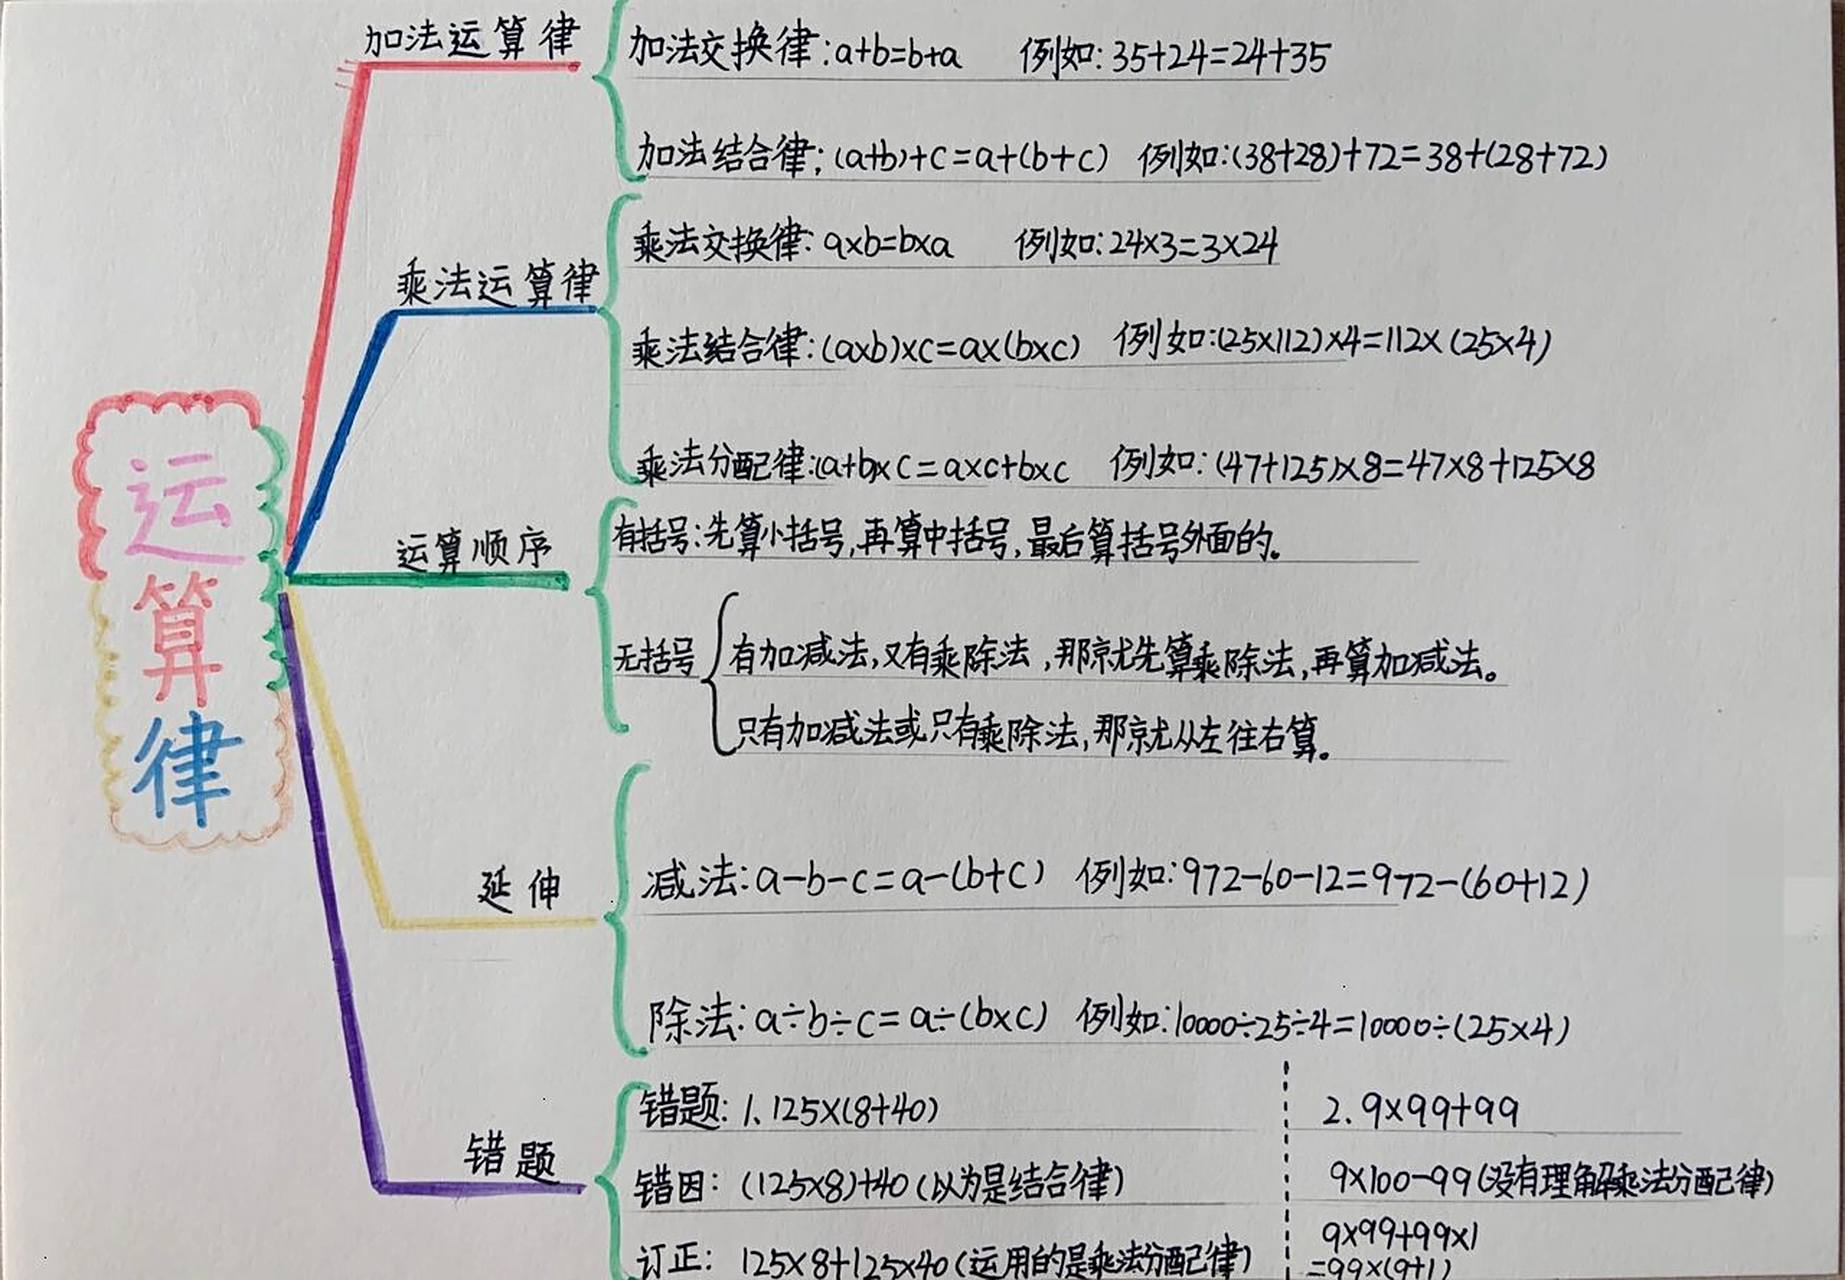 运算律
加法运算律
加法交换律:a+b=b+a 例如:35+24=24+35
加法结合律:(a+b)+c=a+(b+c) 例如:(38+28)+72=38+(28+72)
乘法运算律
乘法交换律:a×b=b×a 例如:24×3=3×24
乘法结合律:(a×b)×c=a×(b×c) 例如:(25×112)×4=112×(25×4)
乘法分配律:(a+b)×c=a×c+b×c 例如:(47+125)×8=47×8+125×8
运算顺序
有括号:先算小括号,再算中括号,最后算括号外面的。
无括号
有加减法,又有乘除法,那就先算乘除法,再算加减法。
只有加减法或只有乘除法,那就从左往右算。
延伸
减法:a-b-c=a-(b+c) 例如:972-60-12=972-(60+12)
除法:a÷b÷c=a÷(b×c) 例如:10000÷25÷4=10000÷(25×4)
错题
错题:1、125×(8+40)
错因:(125×8)+40(以为是结合律)
订正:125×8+125×40(运用的是乘法分配律)
2.9×99+99
9×100-99(没有理解乘法分配律)
9×99+99×1
=99×(9+1)